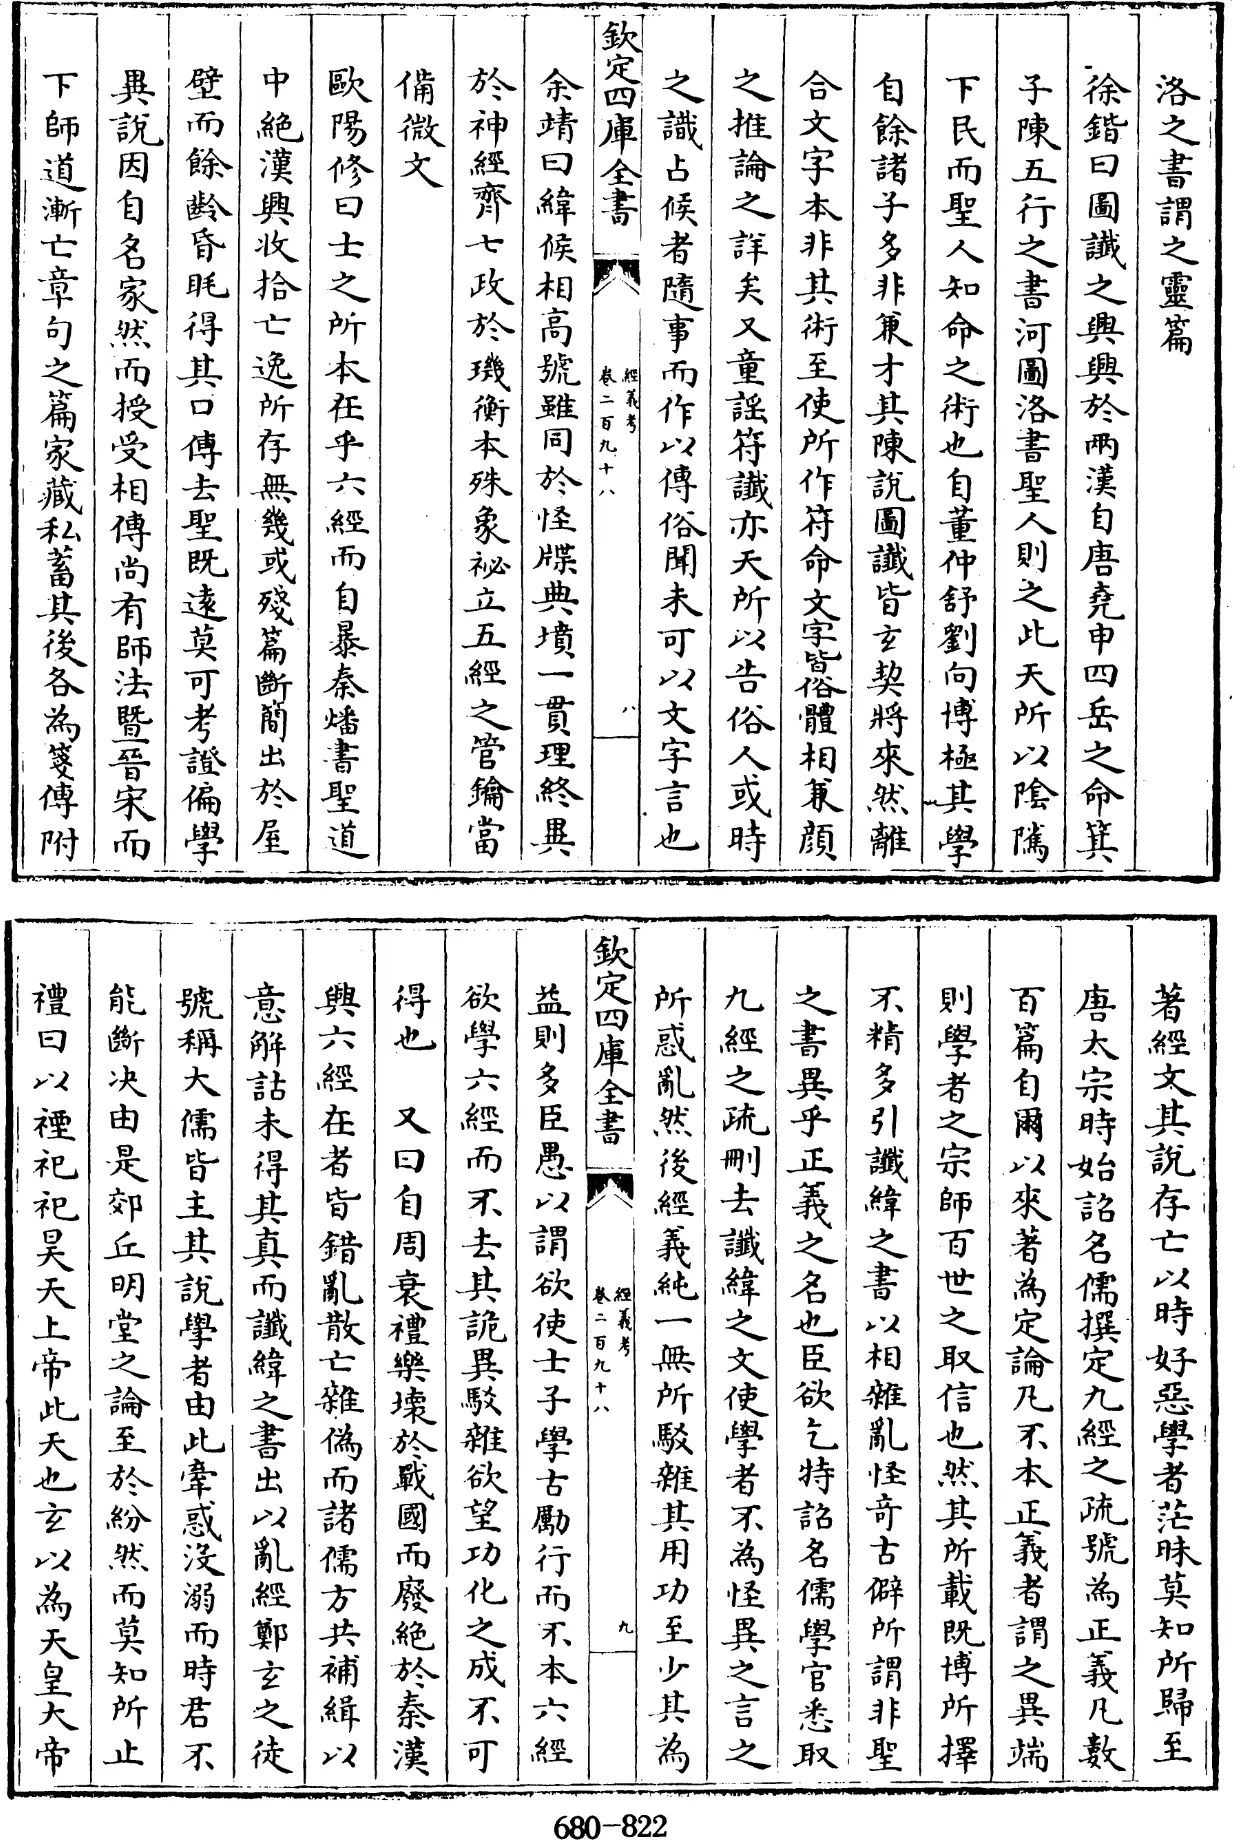 洛之書謂之靈篇
徐鍇曰圖讖之興興於兩漢自唐堯申四岳之命箕
子陳五行之書河圖洛書聖人則之此天所以陰隲
下民而聖人知命之術也自董仲舒劉向博極其學
自餘諸子多非兼才其陳說圖讖皆玄契將來然離
合文字本非其術至使所作符命文字皆俗體相兼顔
之推論之詳矣又童謡符讖亦天所以告俗人或時
之識占候者隨事而作以傳俗聞未可以文字言也
欽定四庫全書
經義考
卷二百九十八
八
余靖曰緯候相高號雖同於怪牒典墳一貫理終異
於神經齊七政於璣衡本殊象祕立五經之管鑰當
備微文
歐陽修曰士之所本在乎六經而自暴秦燔書聖道
中絶漢興收拾亡逸所存無幾或殘篇斷簡出於屋
壁而餘齡昏眊得其口傳去聖既遠莫可考證偏學
異說因自名家然而授受相傳尚有師法暨晉宋而
下師道漸亡章句之篇家藏私蓄其後各為箋傳附
著經文其說存亡以時好惡學者茫昧莫知所歸至
唐太宗時始詔名儒撰定九經之疏號為正義凡數
百篇自爾以來著為定論凡不本正義者謂之異端
則學者之宗師百世之取信也然其所載既博所擇
不精多引讖緯之書以相雜亂怪奇古僻所謂非聖
之書異乎正義之名也臣欲乞特詔名儒學官悉取
九經之疏刪去讖緯之文使學者不為怪異之言之
所惑亂然後經義純一無所駁雜其用功至少其為
欽定四庫全書
經義考
卷二百九十八
九
益則多臣愚以謂欲使士子學古勵行而不本六經
欲學六經而不去其詭異駁雜欲望功化之成不可
得也　又曰自周衰禮樂壞於戰國而廢絶於秦漢
興六經在者皆錯亂散亡雜偽而諸儒方共補緝以
意解詁未得其真而讖緯之書出以亂經鄭玄之徒
號稱大儒皆主其說學者由此牽惑没溺而時君不
能斷决由是郊丘明堂之論至於紛然而莫知所止
禮曰以禋祀祀昊天上帝此天也玄以為天皇大帝
680-822